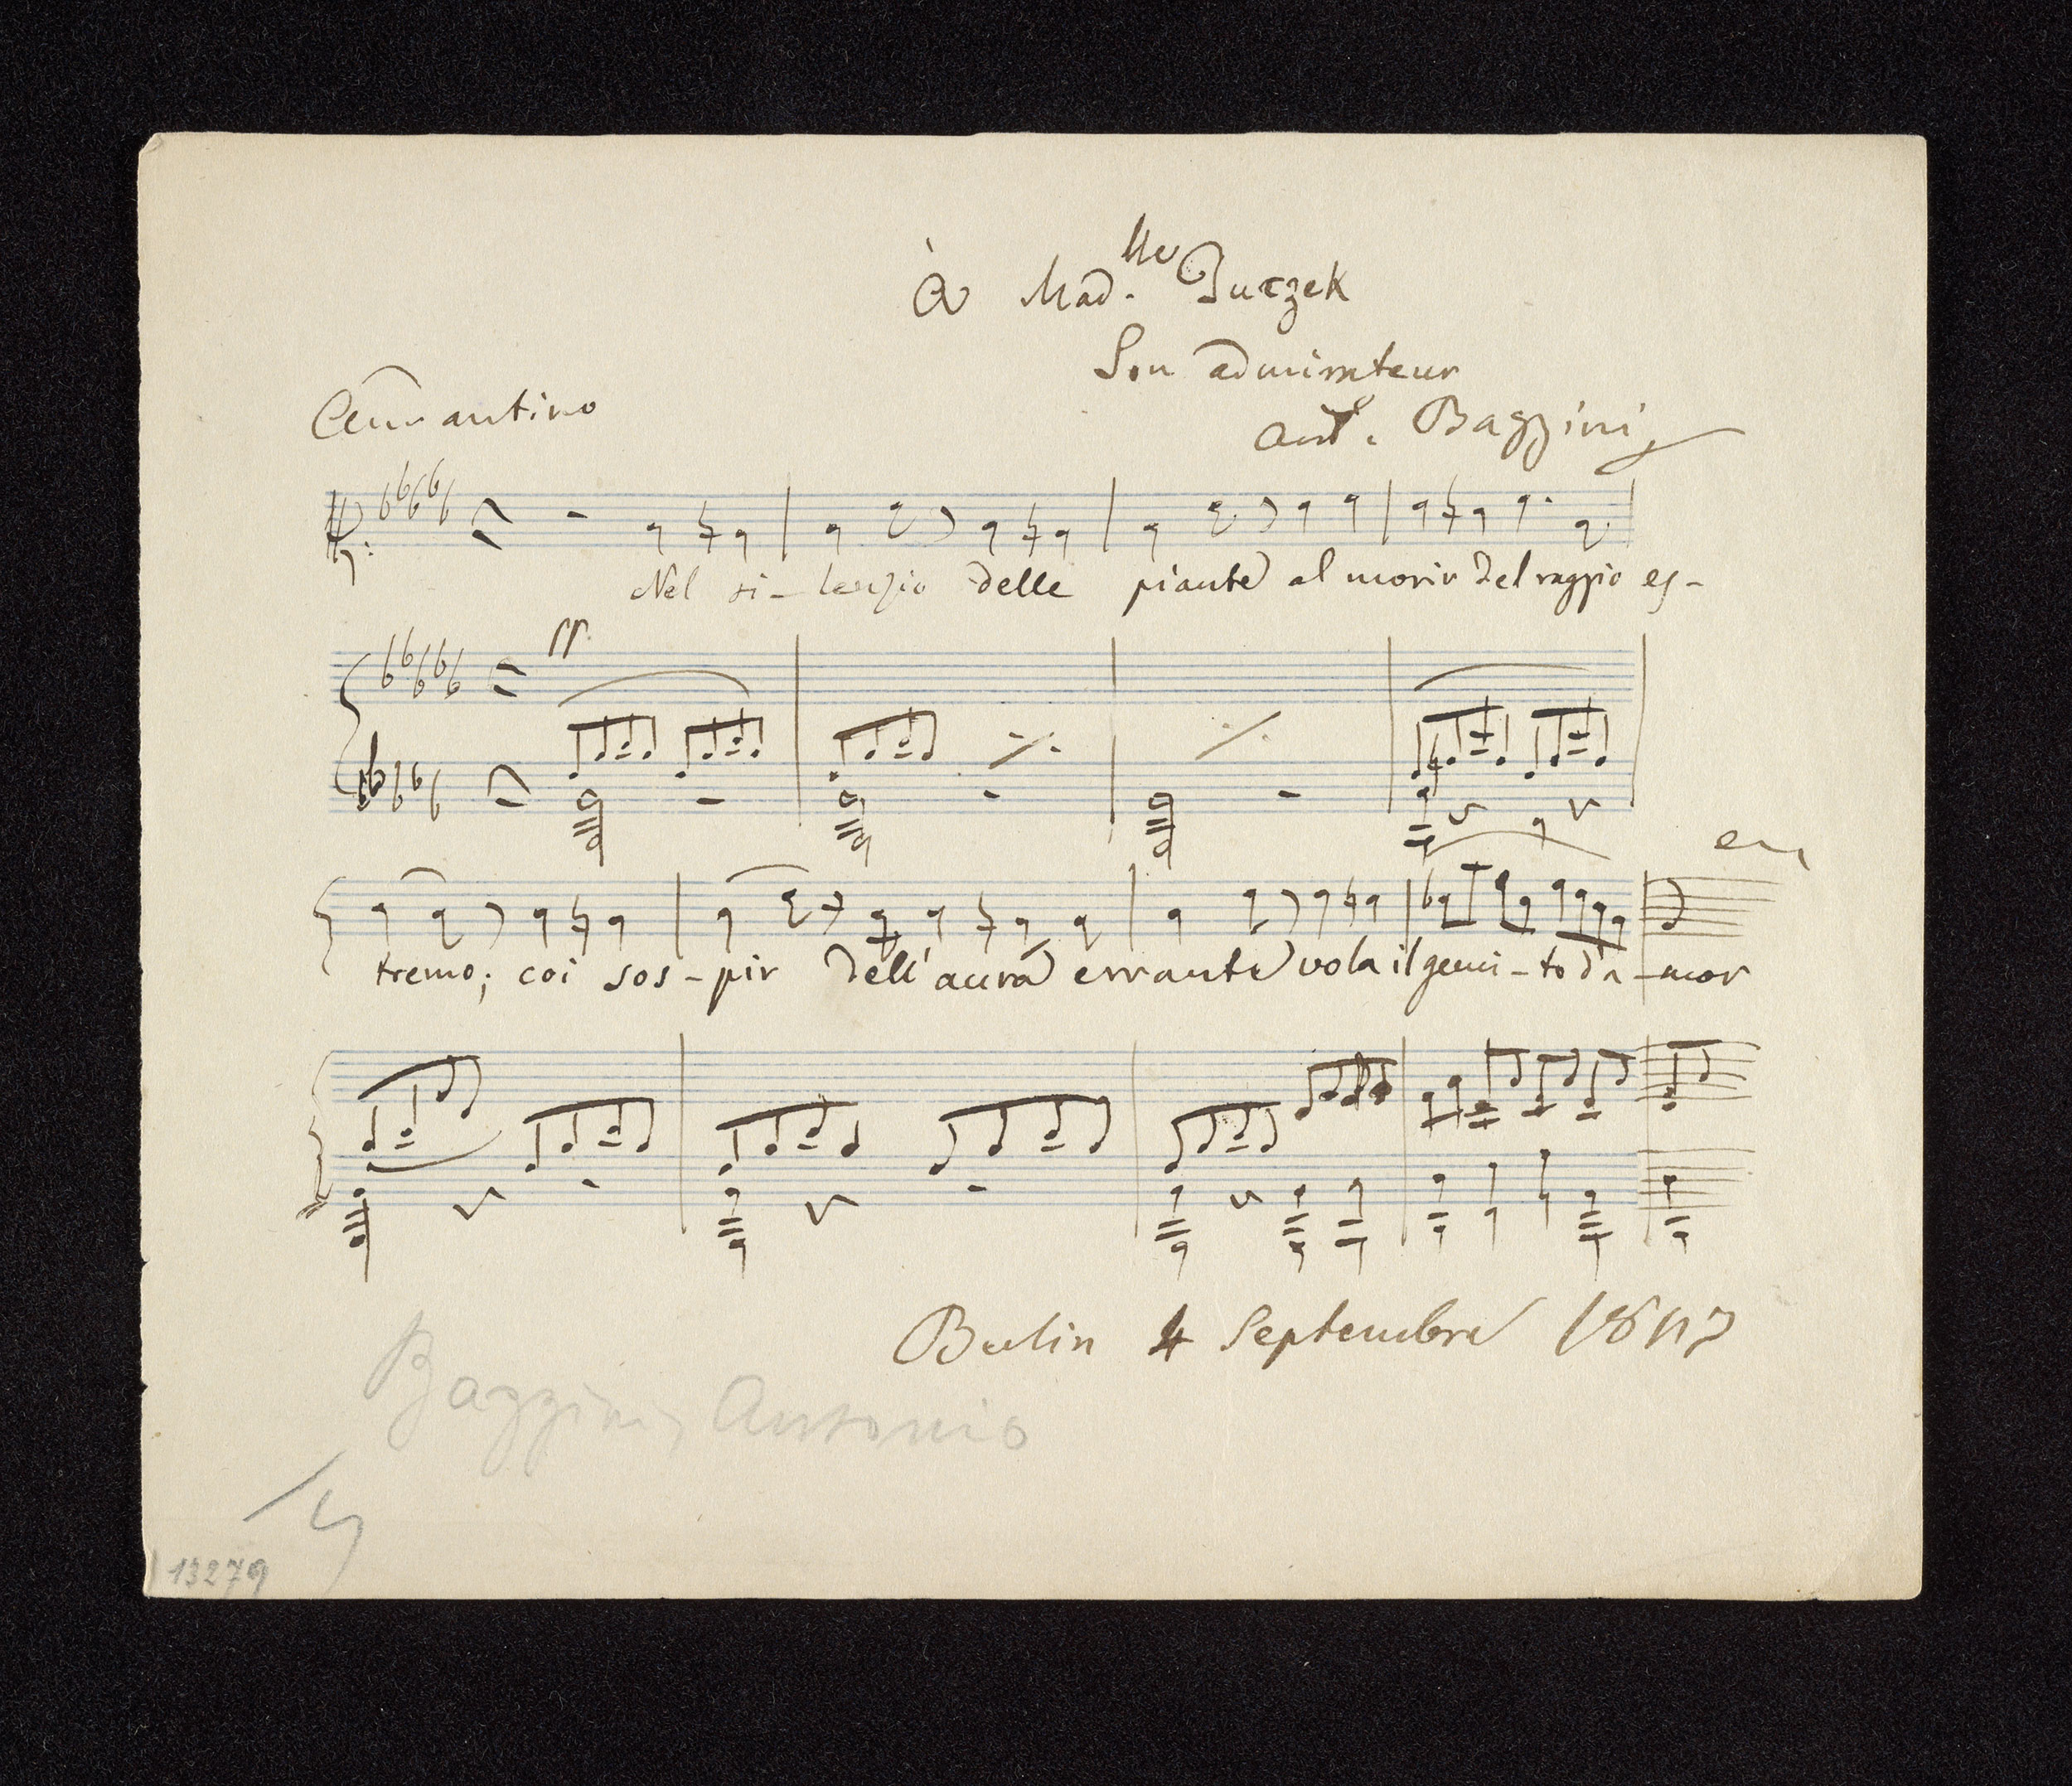 à Mad.lle Tuczek
Son admirateur
Ant.o Bazzini
Andantino
Nel si- lenzio delle piante al morir del raggio es-
pp.
tremo; coi sos-pir dell'aura errante vola il gemi-to d'a-mor
Berlin 4 Septembre 1847
Bazzini, Antonio
13279